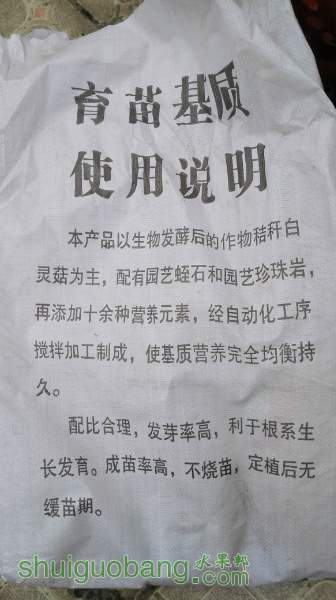 育苗基质
使用说明
本产品以生物发酵后的作物秸秆白
灵菇为主，配有园艺蛭石和园艺珍珠岩，
再添加十余种营养元素，经自动化工序
搅拌加工制成，使基质营养完全均衡持
久。
配比合理，发芽率高，利于根系生
长发育。成苗率高，不烧苗，定植后无
缓苗期。
水果邦
shuiguobang.com